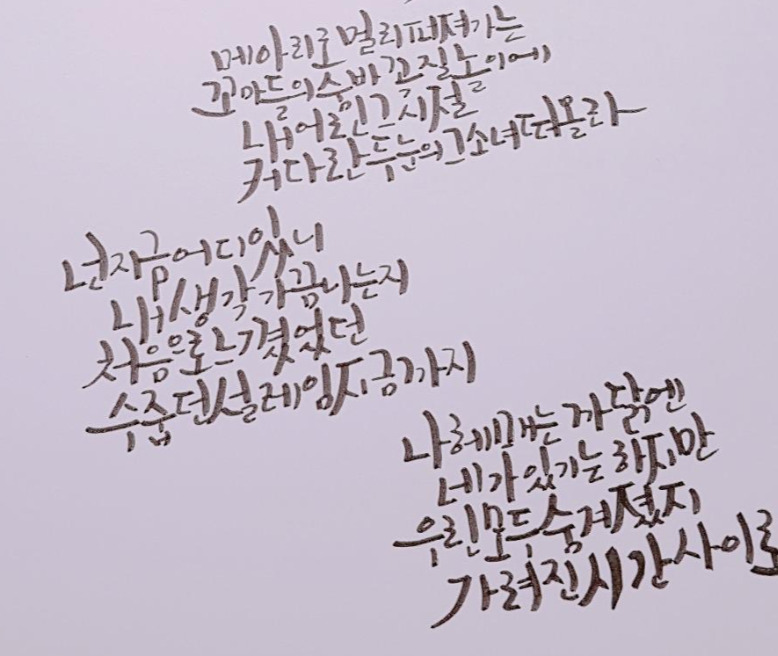 메아리로 멀리 퍼져가는
꼬마들의 숨바꼭질 놀이에
내 어린 그 시절
커다란 두 눈의 그 소녀 떠올라
넌 지금 어디 있니
내 생각 가끔 나는지
처음으로 느꼈었던
수줍던 설레임 지금까지
나 헤매는 까닭엔
네가 있기는 하지만
우린 모두 숨겨졌지
가려진 시간 사이로